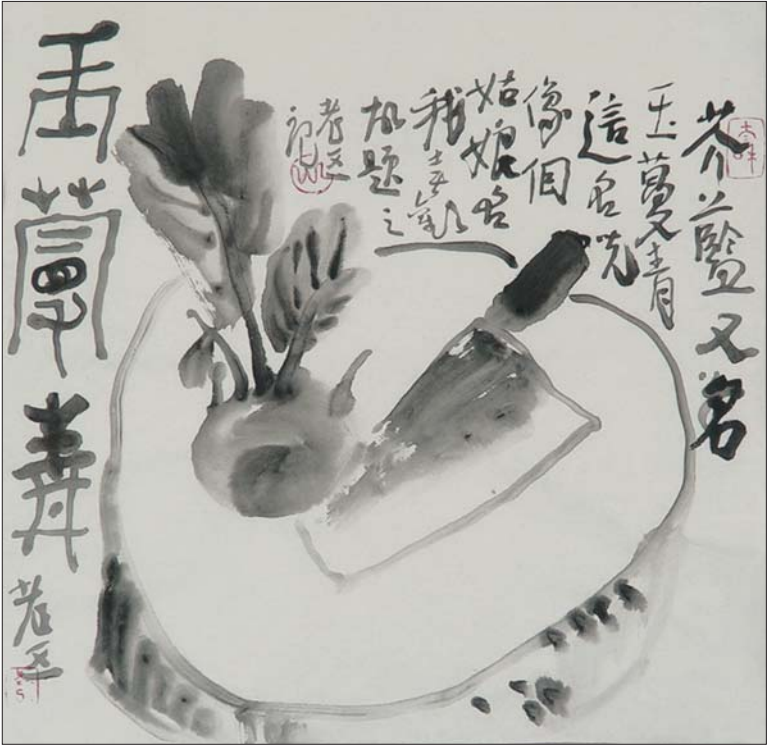 芥藍又名
玉蔓青
這名兒
像個
姑娘名
我喜歡
故題之
老
記
玉蔓菁
老